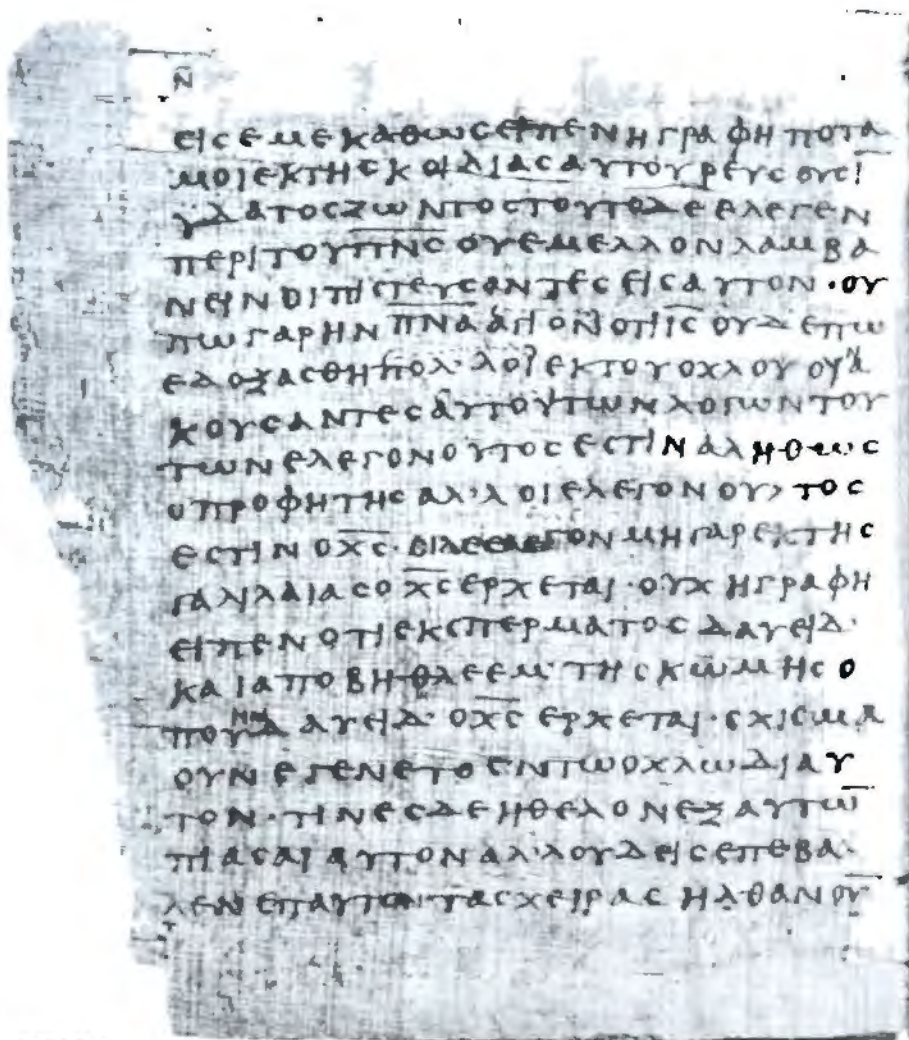 Ν̄
ΕΙCΕΜΕΚΑΘΩCΕΙΠΕΝΗΓΡΑΦΗΠΟΤΑ
ΜΟΙΕΚΤΗCΚΟΙΛΙΑCΑΥΤΟΥΡΕΥCΟΥCΙ
ΥΔΑΤΟCΖΩΝΤΟCΤΟΥΤΟΔΕΕΛΕΓΕΝ
ΠΕΡΙΤΟΥΠ̅Ν̅C̅ΟΥΕΜΕΛΛΟΝΛΑΜΒΑ
ΝΕΙΝΟΙΠΙCΤΕΥCΑΝΤΕCΕΙCΑΥΤΟΝ·ΟΥ
ΠΩΓΑΡΗΝΠ̅Ν̅Α̅ΑΓΙΟΝΟΤΙΙ̅C̅ΟΥΔΕΠΩ
ΕΔΟΞΑCΘΗΠΟΛ·ΛΟΙΕΚΤΟΥΟΧΛΟΥΟΥΑ
ΚΟΥCΑΝΤΕCΑΥΤΟΥΤΩΝΛΟΓΩΝΤΟΥ
ΤΩΝΕΛΕΓΟΝΟΥΤΟCΕCΤΙΝΑΛΗΘΩC
ΟΠΡΟΦΗΤΗCΑΛ·ΛΟΙΕΛΕΓΟΝΟΥ›ΤΟC
ΕCΤΙΝΟΧ̅C̅·ΟΙΔΕΕΛΕΓΟΝΜΗΓΑΡΕΚΤΗC
ΓΑΛΙΛΑΙΑCΟΧ̅C̅ΕΡΧΕΤΑΙ·ΟΥΧΗΓΡΑΦΗ
ΕΙΠΕΝΟΤΙΕΚCΠΕΡΜΑΤΟCΔΑΥΕΙΔ·
ΚΑΙΑΠΟΒΗΘΛΕΕΜ·ΤΗCΚΩΜΗCΟ
ΠΟΥΗΝΔΑΥΕΙΔ·ΟΧ̅C̅ΕΡΧΕΤΑΙ·CΧΙCΜΑ
ΟΥΝΕΓΕΝΕΤΟΕΝΤΩΟΧΛΩΔΙΑΥ
ΤΟΝ·ΤΙΝΕCΔΕΗΘΕΛΟΝΕΞΑΥΤΩ̅
ΠΙΑCΑΙΑΥΤΟΝΑΛ·ΛΟΥΔΕΙCΕΠΕΒΑ·
ΛΕΝΕΠΑΥΤΟΝΤΑCΧΕΙΡΑCΗΛΘΑΝΟΥ̅